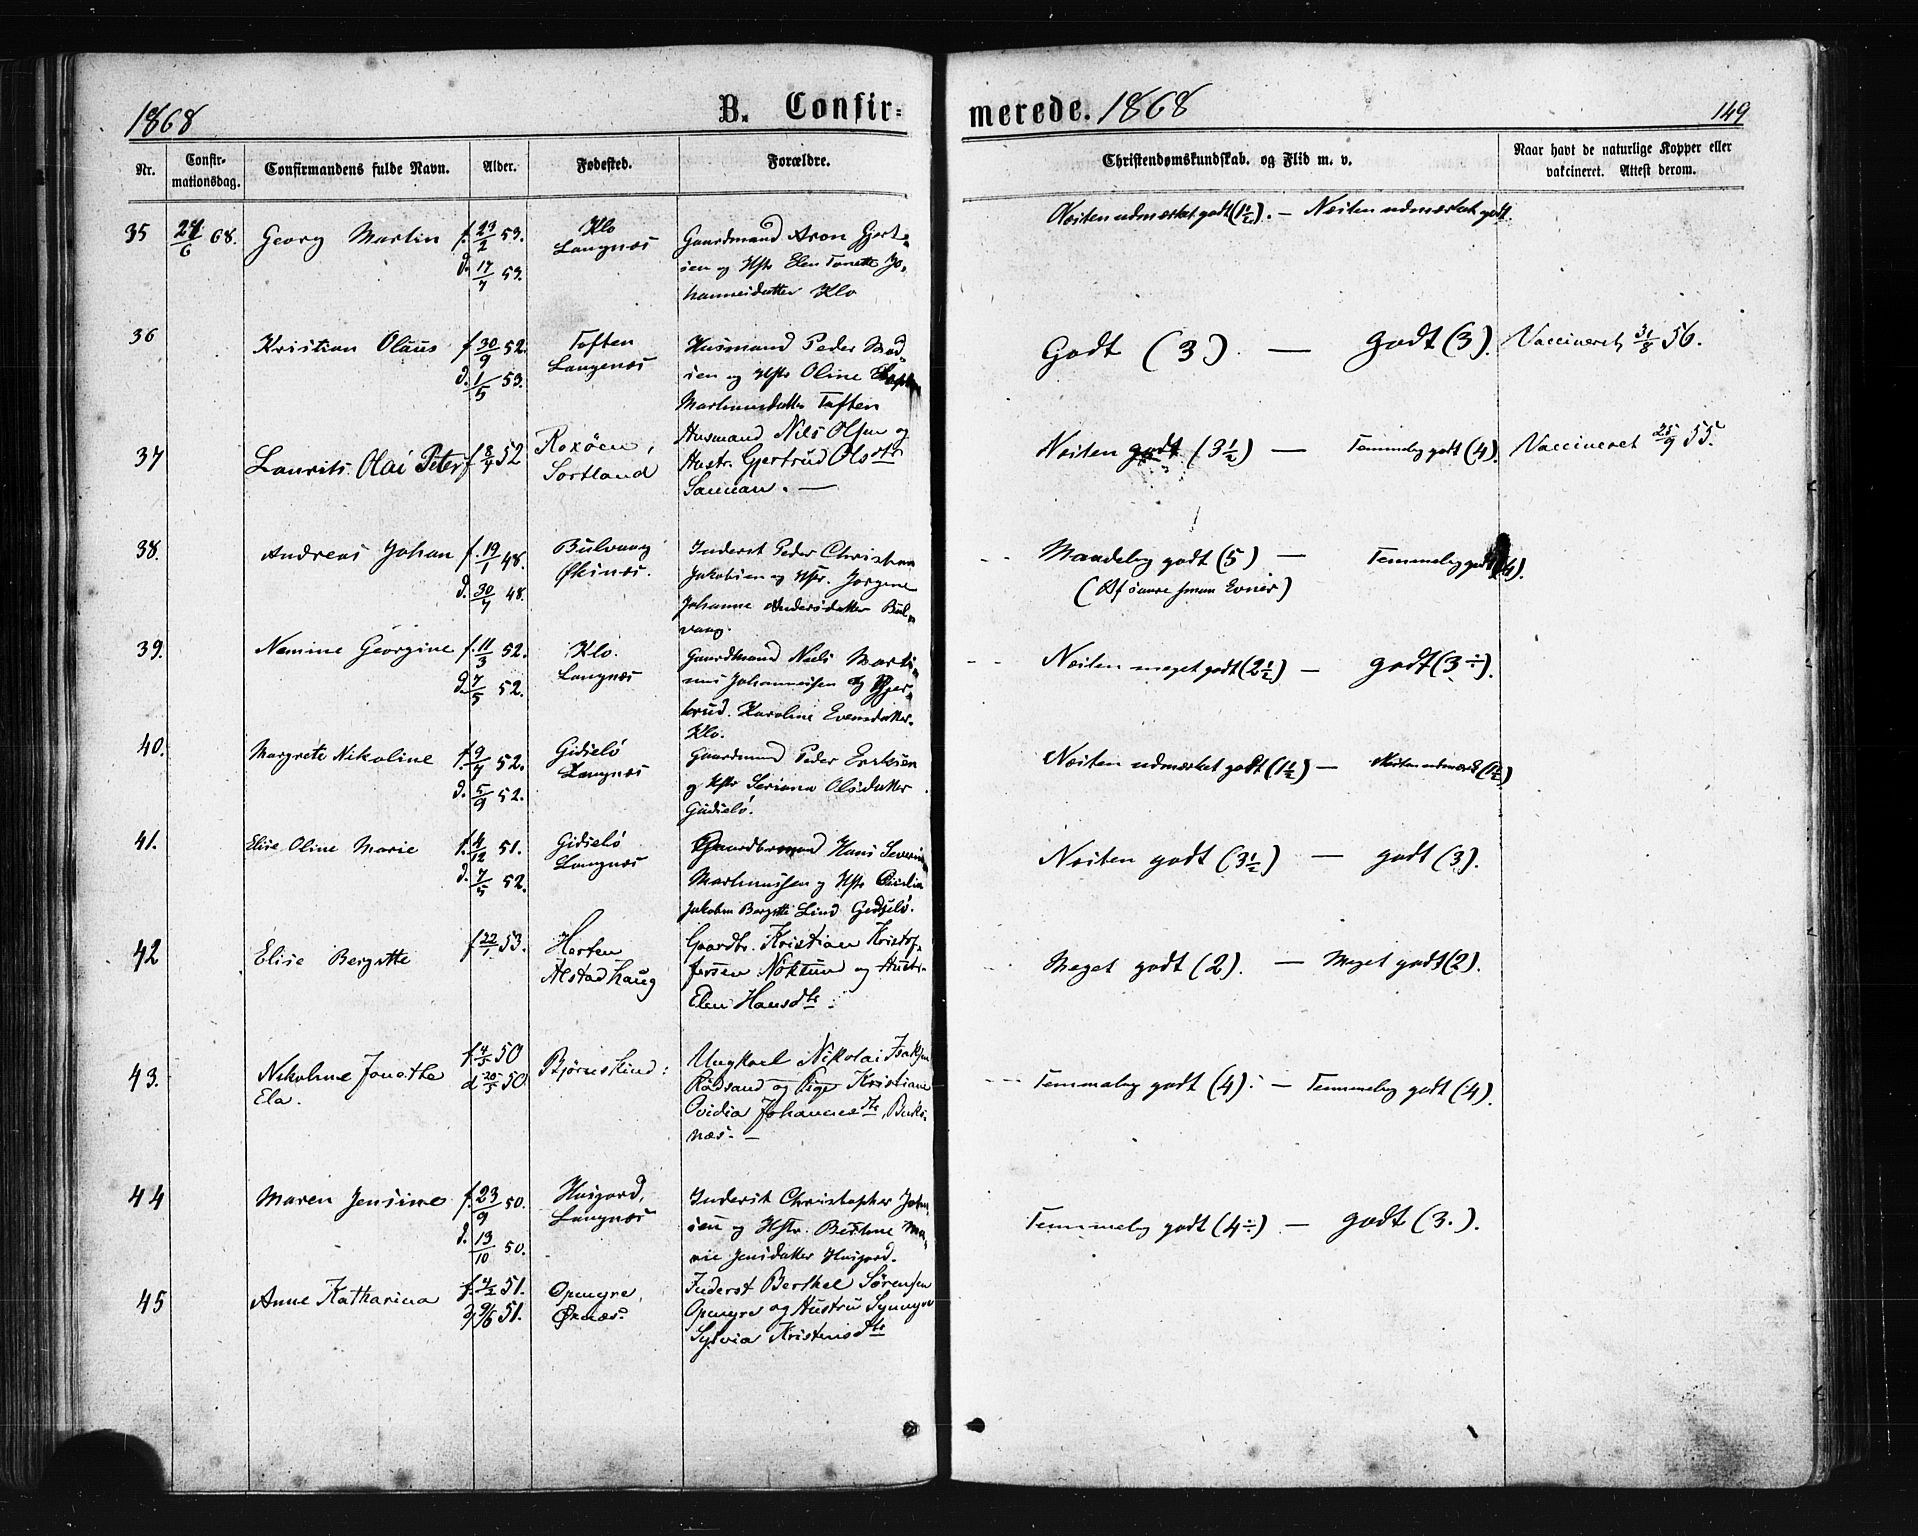 1868
B. Confir=
merede. 1868
149
Nr.
Confir-
mationsdag.
Confirmandens fulde Navn.
Alder.
Fødested.
Forældre.
Christendomskundskab. og Flid m. v.
Naar havt de naturlige Kopper eller
vakcineret. Attest derom.
35 24/6 68. Georg Martin f. 23/2 53.
d. 17/7 53.
Klo
Langnæs
Gaardmand Aron Gjert-
sen og Hstr Elen Tonette Jo-
hannesdatter Klo
Næsten udmærket godt (1½). — Næsten udmærket godt.
36 Kristian Olaus f. 30/9 52.
d. 1/5 53.
Toften
Langenæs
Husmand Peder Mad-
sen og Hstr Oline
Martinusdatter Toften
Godt (3). — godt (3). Vaccineret 31/8 56.
37 Laurits Olai Peter f 8/4 52
Roxøen,
Sortland
Husmand Nils Olsen og
Hustr. Gjertrud Olsdtr
Sannan. —
Næsten godt (3½) — Temmelig godt (4). Vaccineret 25/9 55.
38. Andreas Johan f. 19/1 48.
d. 30/7 48.
Bulvaag
Øksnæs.
Inderst Peder Christian
Jakobsen og Hstr. Jørgine
Johanne Andersdatter Bul-
vaag.
Maadelig godt (5) — Temmelig godt (4).
(Af svare smaa Evner)
39. Nemine Georgine f. 11/3 52.
d. 7/5 52.
Klo.
Langnæs
Gaardmand Niels Marti-
nus Johannessen og Gjer-
trud Karoline Evensdatter
Klo.
Næsten meget godt (2½) — godt (3÷).
40. Margrete Nikoline f. 9/7 52.
d. 5/9 52.
Gidselö
Langnæs
Gaardmand Peder Eriksen
og Hstr Seriana Olsdatter
Gidselö.
Næsten udmærket godt (1½) — Næsten udmærk (1½)
41. Elise Oline Marie f. 4/12 51.
d. 7/5 52.
Gidselö
Langnæs
Gaardbrmand Hans Severin
Martinussen og Hstr
Jakobine Bergitte Lind Gidselö.
Næsten godt (3½) — godt (3).
42 Elise Bergitte f 22/7 53.
Herten
Alstadhaug
Gaardbr. Kristian Kristof-
fersen Nöksund og Hustr.
Elen Hansdtr.
Meget godt (2). — Meget godt (2).
43. Nikoline Jonetha
Ela.
f 4/3 50
d 20/5 50
Bjørnskind:
Ungkarl Nikolai Isaksen
Rødsand og Pige Kristiane
Ovidia Johannesdtr, Buks-
næs. —
Temmelig godt (4). — Temmelig godt (4).
44 Maren Jensine f. 23/9 50.
d. 13/10 50.
Husjord,
Langnæs
Inderst Christopher John-
sen og Hstr. Berthe Ma-
rie Jensdatter Husjord.
Temmelig godt (4÷) — godt (3.).
45 Anne Katharina f. 4/2 51.
d 9/6 51.
Opmyre,
Øxnæs.
Inderst Berthel Sørensen
Opmyre og Hustru Synnøve
Sylvia Kristensdtr